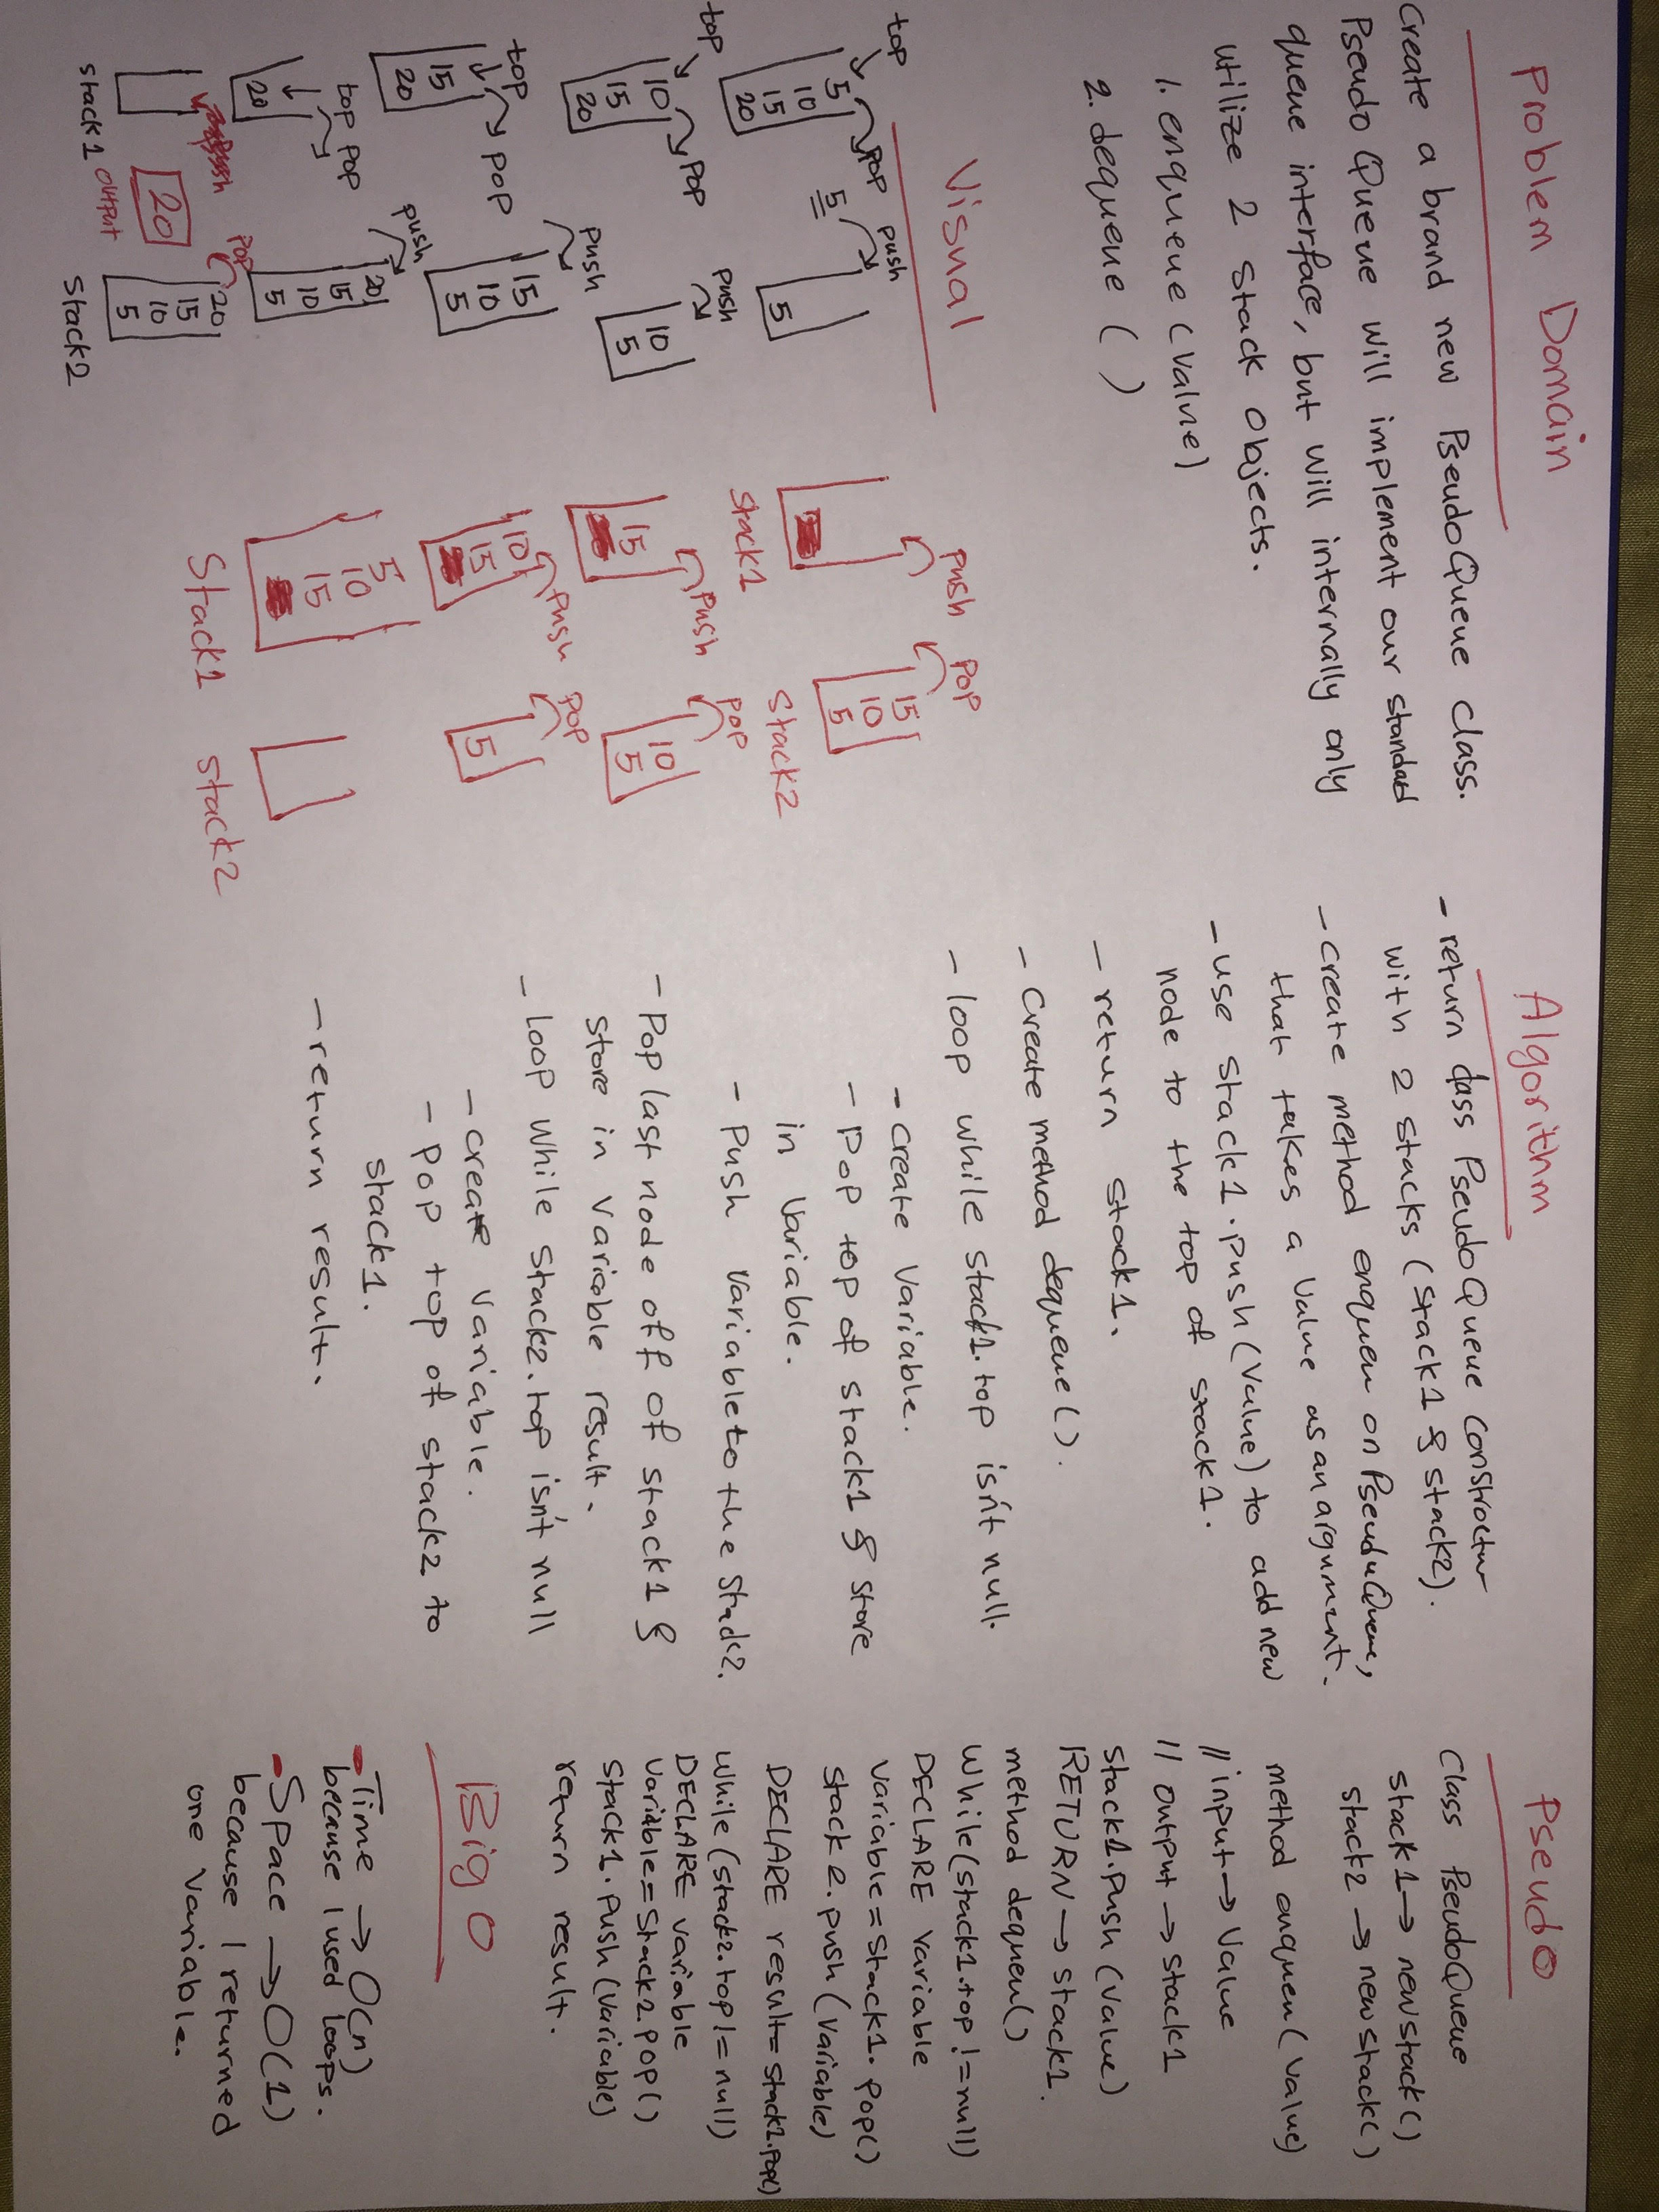 Problem Domain
Create a brand new PseudoQueue class.
PseudoQueue will implement our standard
queue interface, but will internally only
utilize 2 stack objects.
1. enqueue (value)
2. dequeue ( )
Visual
top
pop
push
5
5
10
15
20
5
top
pop
push
10
15
20
10
5
top
pop
push
15
20
15
10
5
top pop
push
20
20
15
10
5
push
pop
20
20
15
10
5
stack1
output
stack2
push
pop
15
10
5
stack1
stack2
push
pop
15
10
5
push
pop
10
15
5
5
10
15
stack1
stack2
Algorithm
- return class PseudoQueue constructur
with 2 stacks (stack1 & stack2).
- create method enqueu on PseuduQueue,
that takes a value as an argument.
- use stack1.push(value) to add new
node to the top of stack1.
- return stack1.
- Create method dequeue().
- loop while stack1.top isn't null.
- create variable.
- pop top of stack1 & store
in variable.
- push variable to the stack2.
- Pop last node off of stack1 &
store in variable result.
- Loop while stack2.top isn't null
- create variable.
- pop top of stack2 to
stack1.
- return result.
Pseudo
Class PseudoQueue
stack1 → new stack()
stack2 → new stack()
method enqueu(value)
// input → value
// output → stack1
stack1.push(value)
RETURN → stack1.
method dequeu()
While(stack1.top != null)
DECLARE variable
variable = stack1.pop()
stack2.push(variable)
DECLARE result = stack2.pop()
While(stack2.top != null)
DECLARE variable
variable = stack2.pop()
stack1.push(variable)
return result.
Big O
- Time → O(n)
because I used loops.
- Space → O(1)
because I returned
one variable.